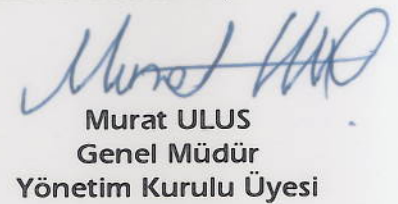 Murat ULUS
Genel Müdür
Yönetim Kurulu Üyesi